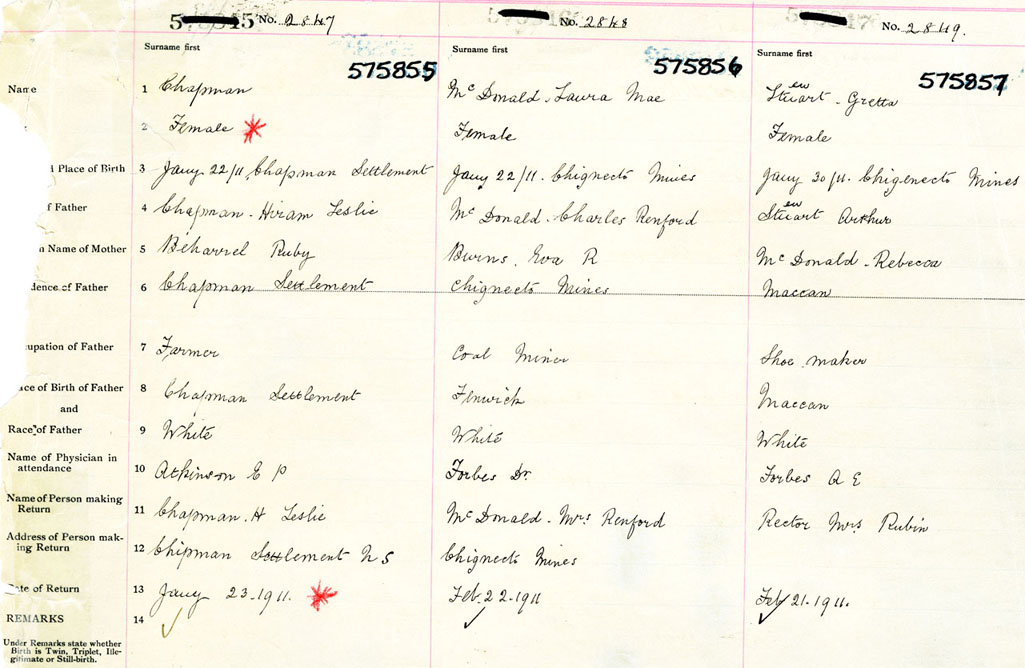 No. 2847 No. 2848 No. 2849.
Surname first Surname first Surname first
575855 575856 575857
Name 1 Chapman Mc Donald - Laura Mae Stuart ew - Gretta
2 Female Female Female
Place of Birth 3 Jany 22/11 Chapman Settlement Jany 22/11. Chignecto Mines Jany 30/11. Chigenecto Mines
of Father 4 Chapman - Hiram Leslie Mc Donald - Charles Renford Stuart ew Arthur
n Name of Mother 5 Beharrel Ruby Burns, Eva R Mc Donald - Rebecca
dence of Father 6 Chapman Settlement Chignecto Mines Maccan
upation of Father 7 Farmer Coal Miner Shoe maker
ace of Birth of Father 8 Chapman Settlement Fenwick Maccan
and
Race of Father 9 White White White
Name of Physician in
attendance 10 Atkinson E P Forbes Dr. Forbes A E
Name of Person making
Return 11 Chapman. H Leslie Mc Donald - Mrs Renford Rector Mrs Rubin
Address of Person mak-
ing Return 12 Chipman Settlement N S Chignects Mines
Date of Return 13 Jany 23-1911. Feb. 22-1911 Feb 21-1911.
REMARKS 14
Under Remarks state whether
Birth is Twin, Triplet, Ille-
gitimate or Still-birth.